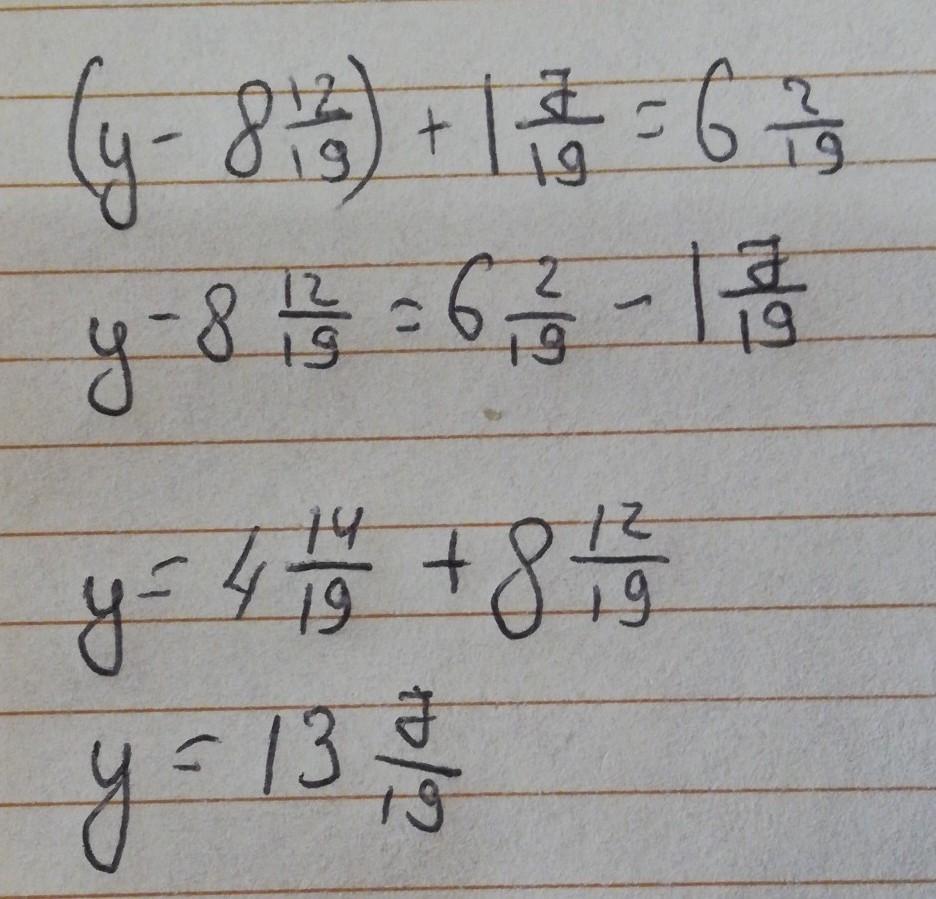 (y - 8 12/19) + 1 7/19 = 6 2/19
y - 8 12/19 = 6 2/19 - 1 7/19
y = 4 14/19 + 8 12/19
y = 13 7/19